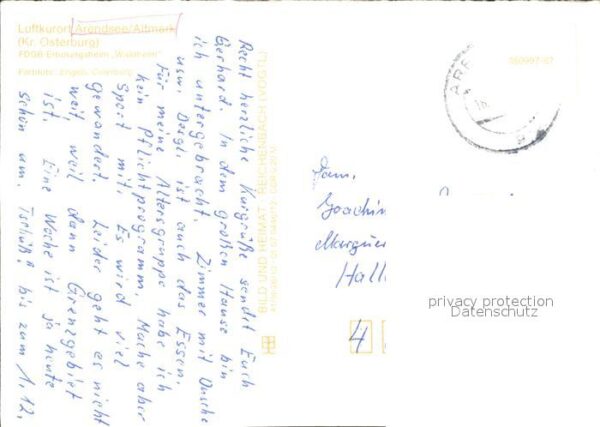 Luftkurort Arendsee/Altmark
(Kr. Osterburg)
FDGB-Erholungsheim "Waldheim"
Recht herzliche Kurgrüße sendet Euch
Gerhard. In dem großen Hause bin
ich untergebracht. Zimmer mit Dusche
usw. Desgl. ist auch das Essen.
Für meine Altersgruppe habe ich
kein Pflichtprogramm. Mache aber
Sport mit. Es wird viel
gewandert. Leider geht es nicht
weit, weil dann Grenzgebiet
ist. Eine Woche ist ja heute
schon um. Tschüß bis zum 1.12.
BILD UND HEIMAT REICHENBACH (VOGTL)
Fam.
Joachim
Hall
4
privacy protection
Datenschutz